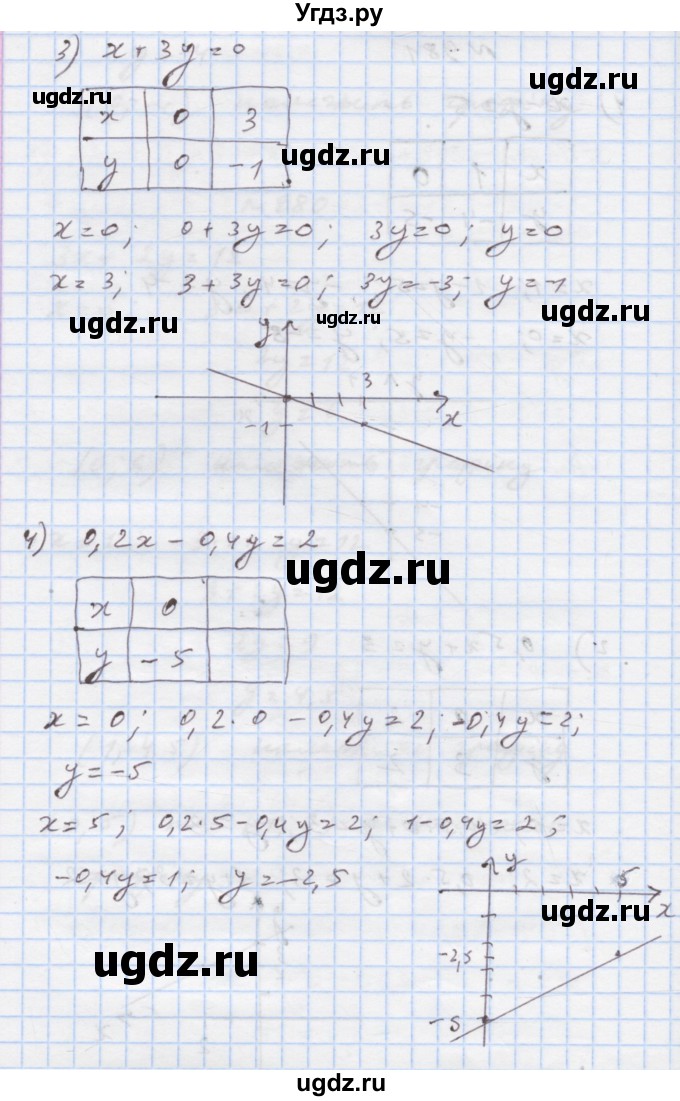 Угдз.ру
3) x + 3y = 0
ugdz.ru
ugdz.ru
x 0 3
y 0 -1
ugdz.ru
x = 0; 0 + 3y = 0; 3y = 0; y = 0
x = 3; 3 + 3y = 0; 3y = -3; y = -1
ugdz.ru
ugdz.ru
ugdz.ru
y
3
x
-1
4) 0,2x - 0,4y = 2
ugdz.ru
x 0
y -5
x = 0; 0,2·0 - 0,4y = 2; -0,4y = 2;
y = -5
x = 5; 0,2·5 - 0,4y = 2; 1 - 0,4y = 2;
-0,4y = 1; y = -2,5
y
5
x
ugdz.ru
ugdz.ru
-2,5
-5
ugdz.ru